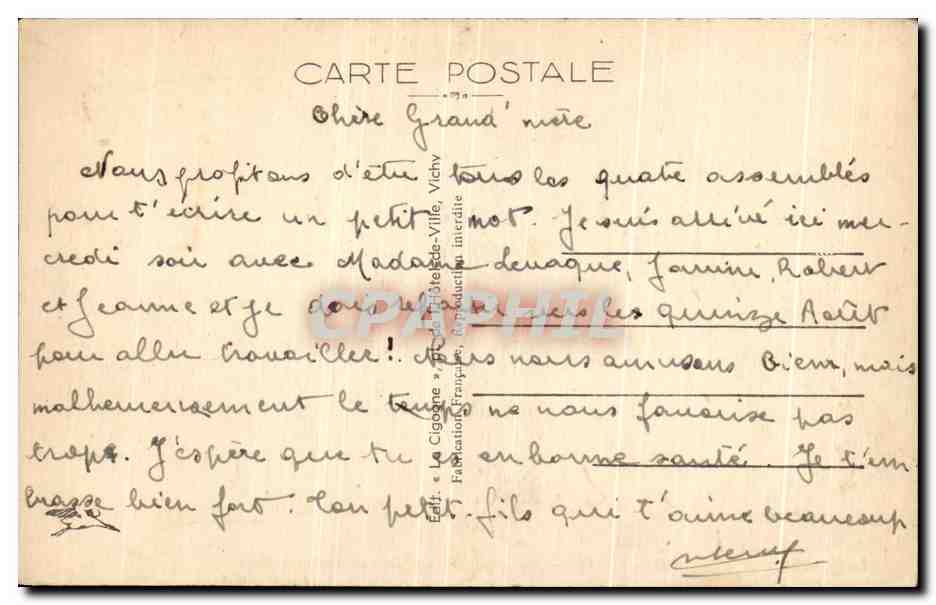 CARTE POSTALE
Chère Grand'mère
Nous profitons d'être tous les quatre assemblés
pour t'écrire un petit mot. Je suis arrivé ici mer-
credi soir avec Madame Levaque, Janine, Robert
et Jeanne et je dois repartir vers les quinze Août
pour aller travailler! Nous nous amusons bien, mais
malheureusement le temps ne nous favorise pas
trop. J'espère que tu es en bonne santé. Je t'em
brasse bien fort. Ton petit-fils qui t'aime beaucoup
Edit. « La Cigogne », de l'Hôtel-de-Ville, Vichy
Fabrication Française, Reproduction interdite
CPAPHIL